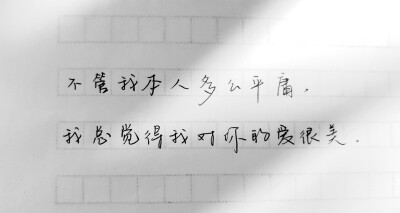 不管我本人多么平庸，
我总觉得我对你的爱很美．